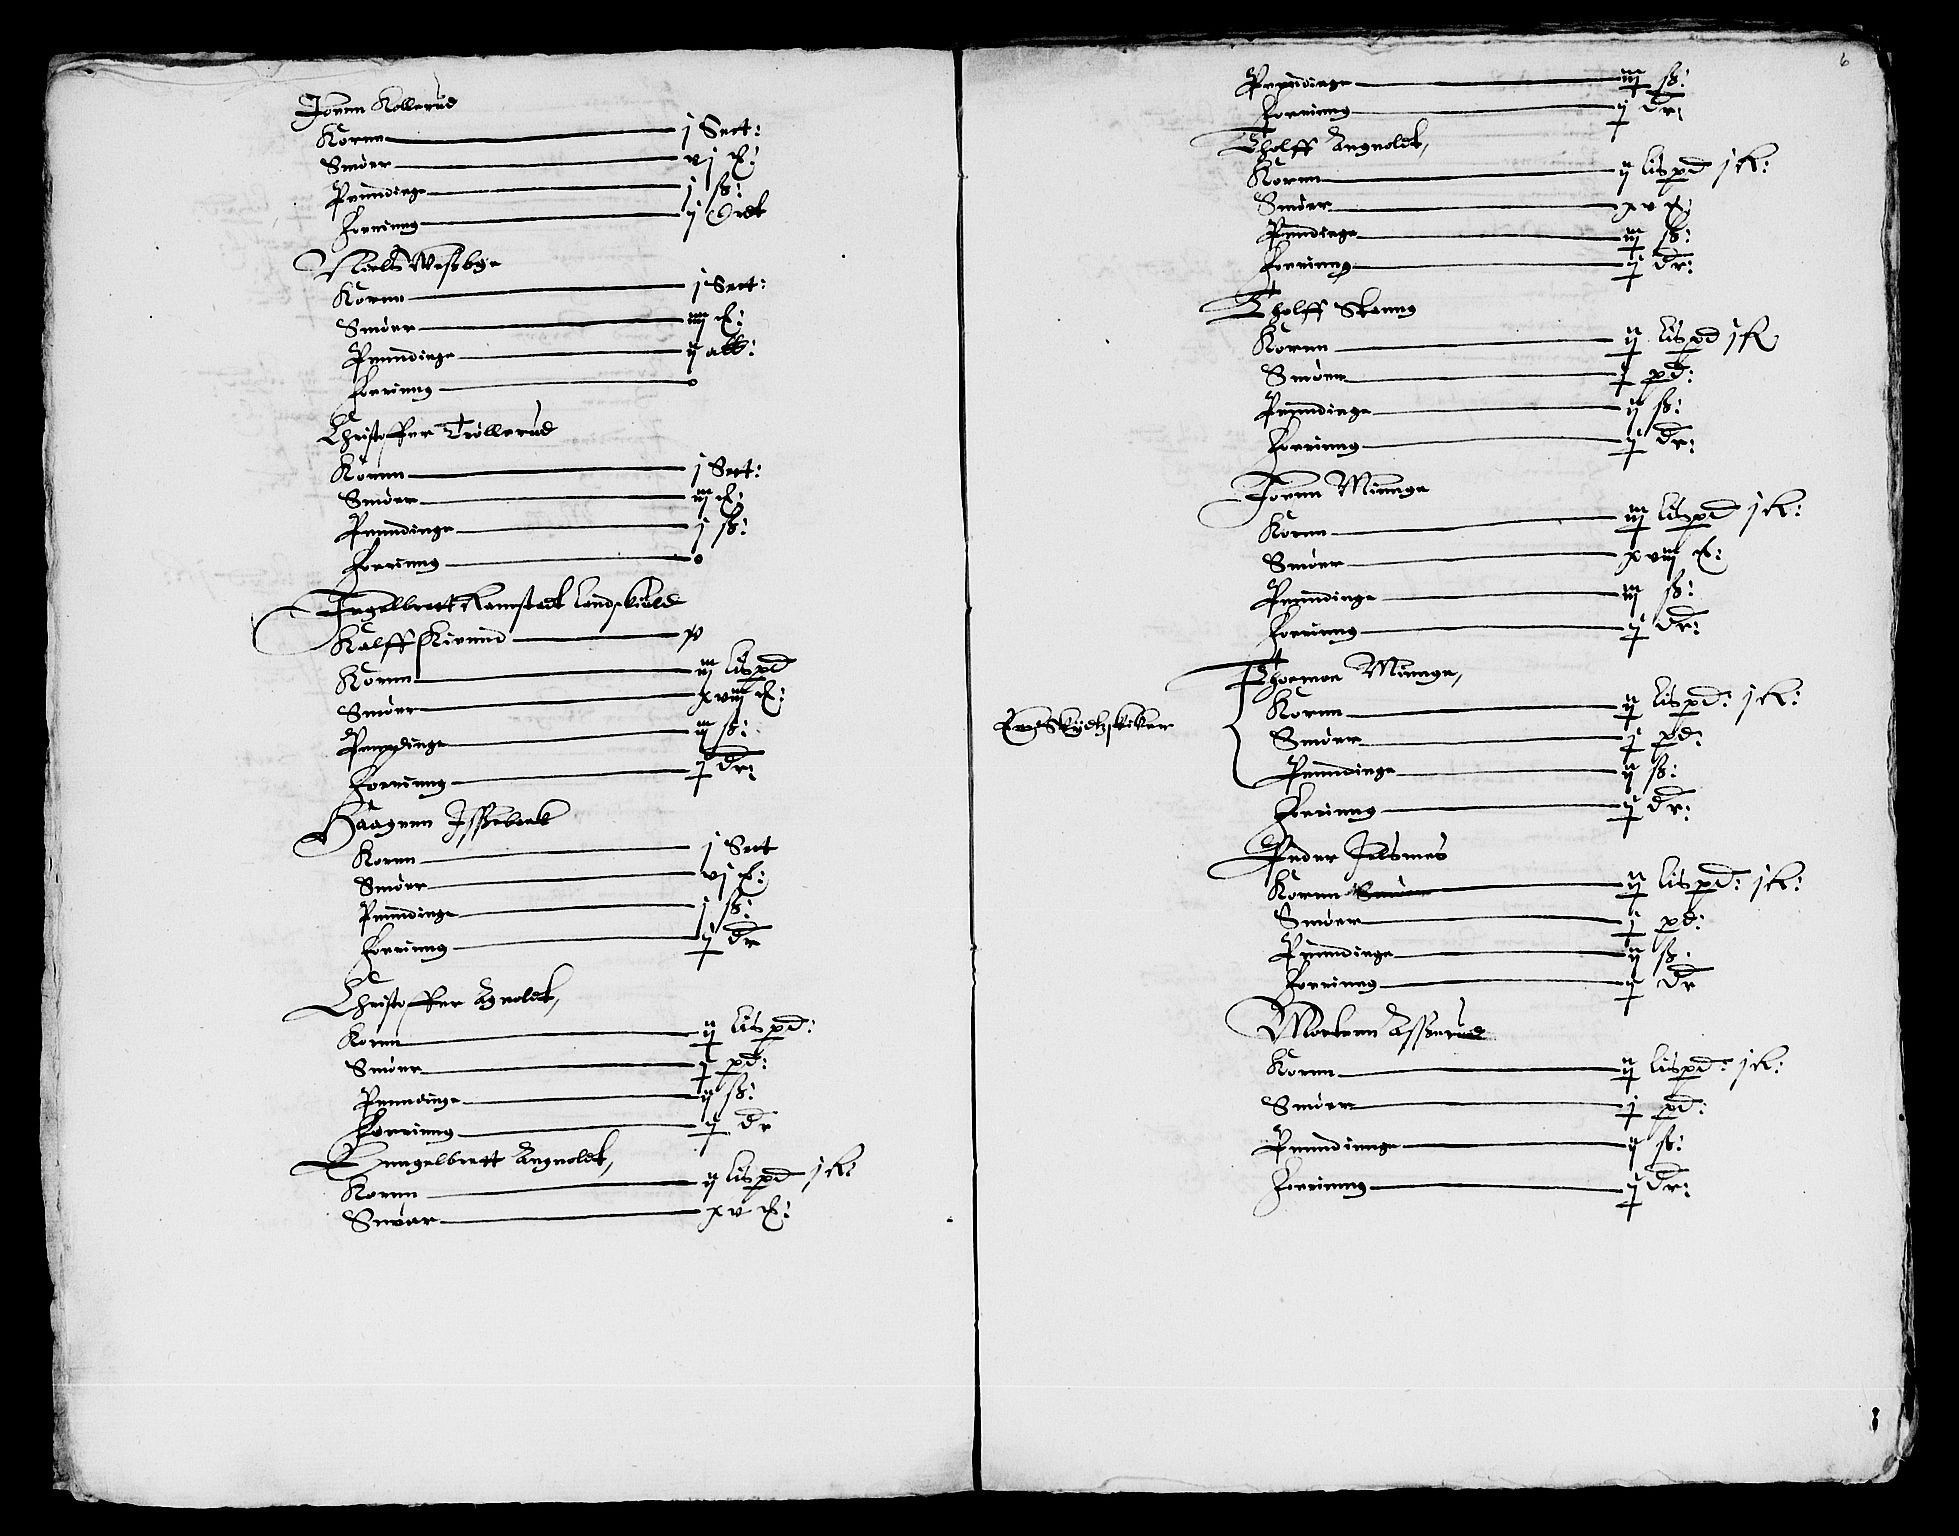 Joenn Kollerud
Kornn j Sect:
Smøer vj ℔:
Penndinge j ß:
Forrinng ij Ortt
Niels Westbye
Kornn j Sect:
Smøer iiij ℔:
Penndinge ij alb:
Forrinng 0
Christoffer Tröllerud
Kornn j Sect:
Smøer iij ℔:
Penndinge j ß:
Forrinng 0
Ingelbrett Ramstadt Landskiuld
Halff
Kornn iij Lispd
Smøer xviij ℔:
Penndinge iij ß:
Forrinng j dr:
Haagenn
Kornn j Sect
Smøer vj ℔:
Penndinge j ß:
Forrinng ij dr
Christoffer Agnoldt,
Kornn ij Lispd:
Smøer j pd:
Penndinge ij ß:
Forrinng ij dr
Enngelbrett Angnoldt,
Kornn ij Lispd j R:
Smøer xv ℔:
6
Penndinge iij ß:
Forrinng j dr:
Tholff Angnoldt,
Kornn ij Lispd j R:
Smøer xv ℔
Penndinge iij ß:
Forrinng ij dr:
Tholff Skanng
Kornn ij Lispd j R
Smøer j pd:
Penndinge ij ß:
Forrinng ij dr:
Joenn Minnge
Kornn iij Lispd j R:
Smøer xviij ℔:
Penndinge iij ß:
Forrinng ij dr:
Thormoe Minnge,
Kornn ij Lispd: j R:
Smøer j pd:
Penndinge ij ß:
Forrinng ij dr:
Peder Jelsnnes
Kornn Smøer ij Lispd: j R:
Smøer j pd:
Penndinge ij ß:
Forrinng ij dr
Mortenn Asserud
Kornn ij Lispd: j R:
Smøer j pd:
Penndinnge ij ß:
Forrinng ij dr: